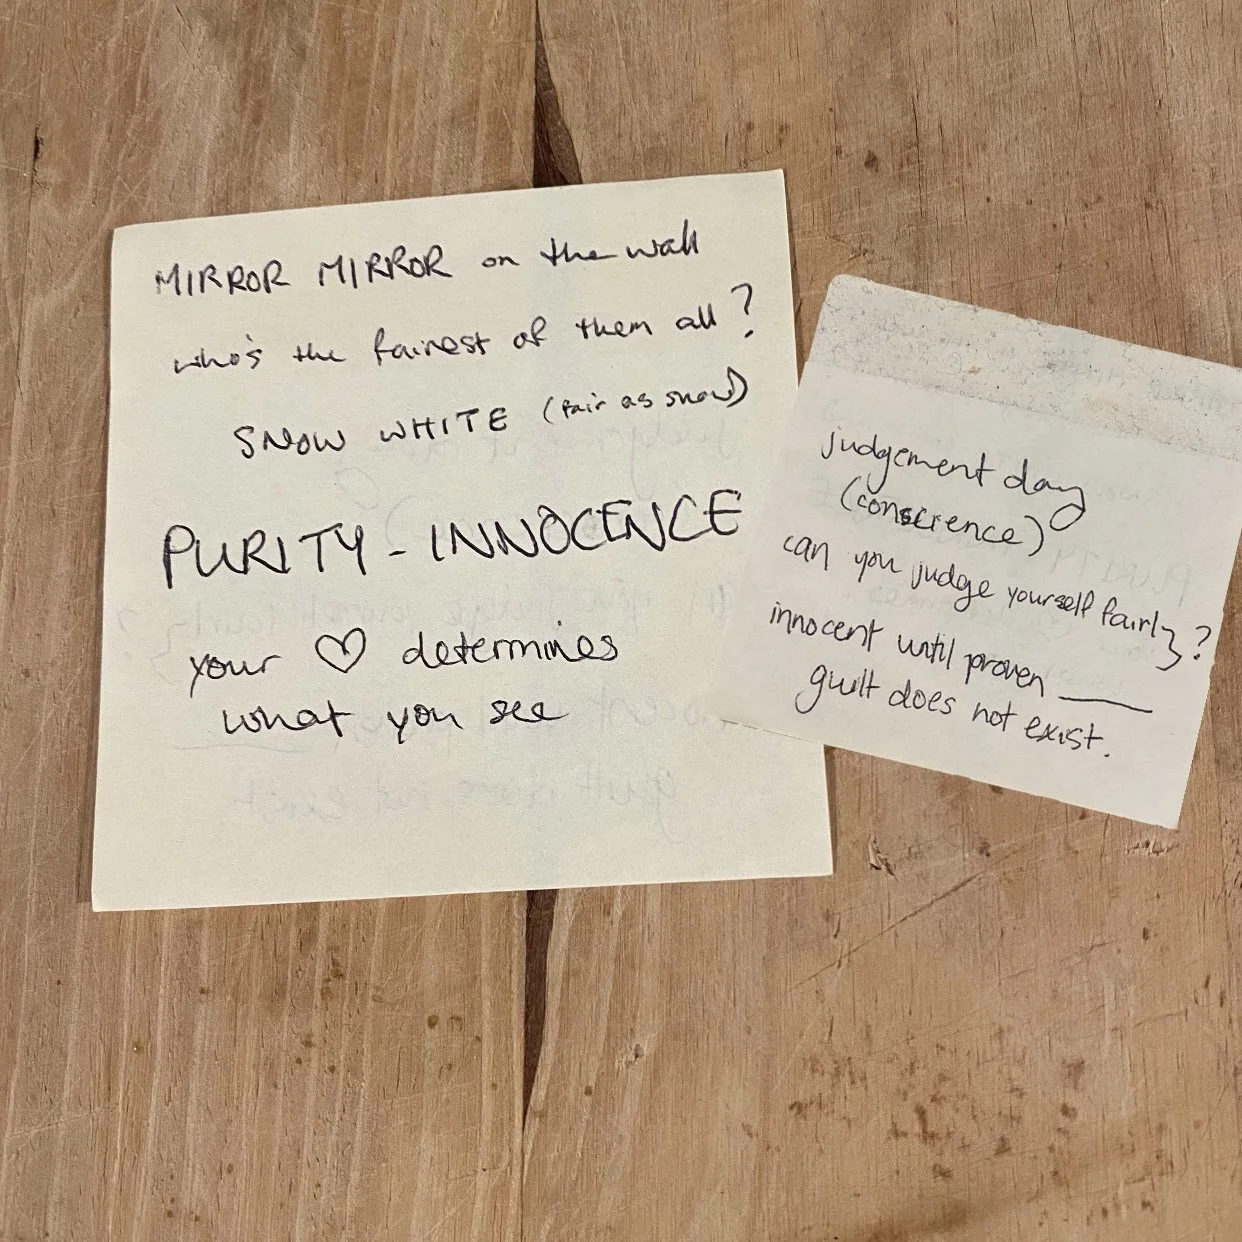 MIRROR MIRROR on the wall
who's the fairest of them all?
SNOW WHITE (fair as snow)
PURITY - INNOCENCE
your ♡ determines
what you see
judgement day
(conscience)
can you judge yourself fairly?
innocent until proven ____
guilt does not exist.